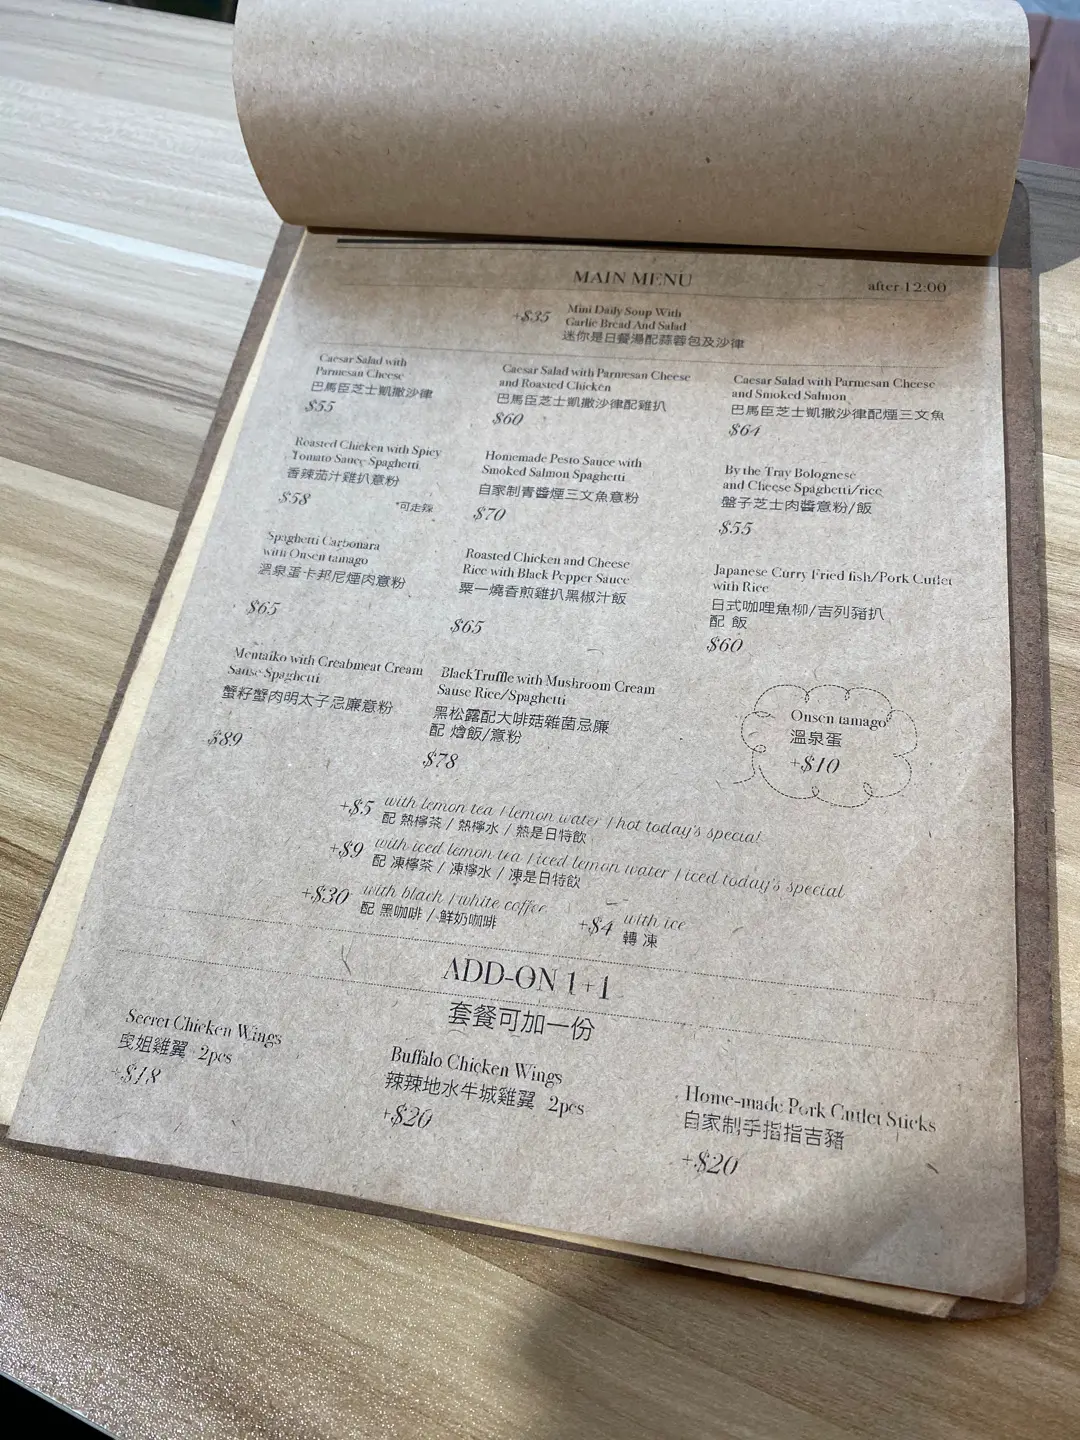 MAIN MENU
after 12:00
+$35
Mini Daily Soup With
Garlic Bread And Salad
迷你是日餐湯配蒜蓉包及沙律
Caesar Salad with
Parmesan Cheese
巴馬臣芝士凱撒沙律
$55
Caesar Salad with Parmesan Cheese
and Roasted Chicken
巴馬臣芝士凱撒沙律配雞扒
$60
Caesar Salad with Parmesan Cheese
and Smoked Salmon
巴馬臣芝士凱撒沙律配煙三文魚
$64
Roasted Chicken with Spicy
Tomato Sauce Spaghetti
香辣茄汁雞扒意粉
$58
*可走辣
Homemade Pesto Sauce with
Smoked Salmon Spaghetti
自家制青醬煙三文魚意粉
$70
By the Tray Bolognese
and Cheese Spaghetti/rice
盤子芝士肉醬意粉/飯
$55
Spaghetti Carbonara
with Onsen tamago
溫泉蛋卡邦尼煙肉意粉
$65
Roasted Chicken and Cheese
Rice with Black Pepper Sauce
粟一燒香煎雞扒黑椒汁飯
$65
Japanese Curry Fried fish/Pork Cutlet
with Rice
日式咖哩魚柳/吉列豬扒
配 飯
$60
Mentaiko with Creabmeat Cream
Sause Spaghetti
蟹籽蟹肉明太子忌廉意粉
$89
Black Truffle with Mushroom Cream
Sause Rice/Spaghetti
黑松露配大啡菇雜菌忌廉
配 燴飯/意粉
$78
Onsen tamago
溫泉蛋
+$10
+$5 with lemon tea / lemon water / hot today's special
配 熱檸茶 / 熱檸水 / 熱是日特飲
+$9 with iced lemon tea / iced lemon water / iced today's special
配 凍檸茶 / 凍檸水 / 凍是日特飲
+$30 with black / white coffee
配 黑咖啡 / 鮮奶咖啡
+$4 with ice
轉 凍
ADD-ON 1+1
套餐可加一份
Secret Chicken Wings
曳姐雞翼 2pcs
+$18
Buffalo Chicken Wings
辣辣地水牛城雞翼 2pcs
+$20
Home-made Pork Cutlet Sticks
自家制手搯指吉豬
+$20